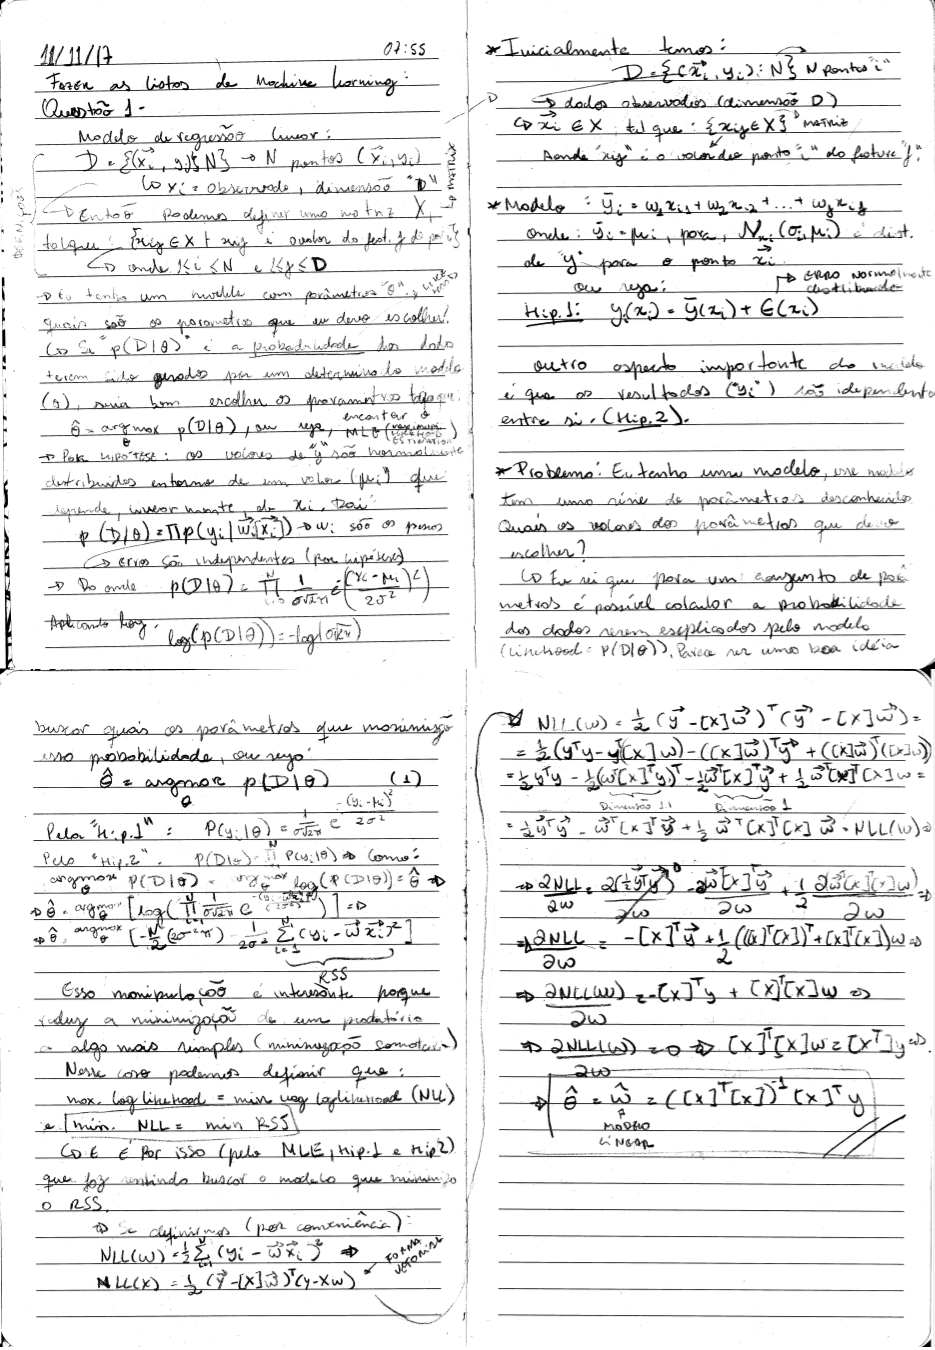 11/11/17 07:55
Fazer as listas de Machine Learning:
Questão 1-
Modelo de regressão linear:
D = {(x⃗i, yi)}N} → N pontos (x⃗i, yi)
↳ xi = observado, dimensão "D"
↳ Então podemos definir uma matriz X,
tal que: {xij ∈ X | xij é o valor do feat. j do
↳ onde 1≤i≤N e 1≤j≤D
→ Eu tenho um modelo com parâmetros "θ",
quais são os parametros que eu devo escolher?
↳ Se "p(D|θ)" é a probabilidade dos dados
terem sido gerados por um determinado modelo
(θ), seria bom escolher os parametros tal que:
θ̂ = argmax θ p(D|θ), ou seja, encontrar θ̂ MLE (maximum likelihood estimation)
→ Por HIPÓTESE: os valores de "y" são normalmente
distribuídos entorno de um valor (μi) que
depende, linearmente, de xi. Daí
p(D|θ) = ∏p(yi|w⃗,x⃗i) → wi são os pesos
↳ erros são independentes (por hipótese)
→ Da onde p(D|θ) = ∏ 1/σ√2π e(-(yi-μi)²/2σ²)
Aplicando log.
log(p(D|θ)) = -log(σ√2π)
* Inicialmente temos:
D = {(x⃗i, yi): N} N pontos "i"
→ dados observados (dimensão D)
↳ x⃗i ∈ X, tal que: {xij ∈ X} MATRIZ
Aonde "xij" é o valor do ponto "i" do feature "j".
* Modelo: ȳi = w1xi1 + w2xi2 + ... + wjxij
onde: ȳi = μi, para, Nxi(σ,μi) é dist.
de "y" para o ponto x⃗i
ou seja: → ERRO NORMALMENTE distribuido
Hip.1: yi(xi) = ȳ(xi) + ε(xi)
outro aspecto importante do modelo
é que os resultados ("yi") são idependentes
entre si. (Hip.2).
* Problema: Eu tenho um modelo, esse modelo
tem uma série de parâmetros desconhecidos
Quais os valores dos parâmetros que devo
escolher?
↳ Eu sei que para um conjunto de parâ
metros é possível calcular a probabilidade
dos dados serem esplicados pelo modelo
(Likelihood = P(D|θ)). Parece ser uma boa idéia
buscar quais os parâmetros que maximizão
essa probabilidade, ou seja:
θ̂ = argmax θ p(D|θ) (1)
Pela "Hip.1": P(yi|θ) = 1/σ√2π e -(yi-μi)²/2σ²
Pela "Hip.2". P(D|θ) = ∏ P(yi|θ) ⇒ Como:
argmax θ P(D|θ) = argmax log(P(D|θ)) = θ̂ ⇒
⇒ θ̂ = argmax θ [log(∏ 1/σ√2π e )] ⇒
⇒ θ̂ = argmax [-N/2 (2σ²π) - 1/2σ² Σ (yi - w⃗x⃗i)²]
RSS
Essa manipulação é interesante porque
reduz a minimização de um produtório
a algo mais simples (minimização somatório)
Nesse caso podemos definir que:
max. loglikelihood = min neg loglikelihood (NLL)
e [min. NLL = min RSS]
↳ E É Por isso (pelo MLE, Hip.1 e Hip2)
que faz sentindo buscar o modelo que minimiza
o RSS.
⇒ Se definirmos (por conveniência):
NLL(w) = 1/2 Σ (yi - w⃗x⃗i)² ⇒
NLL(x) = 1/2 (y⃗ - [x]w⃗)ᵀ(y - Xw) ← FORMA VETORIAL
⇒ NLL(w) = 1/2 (y⃗ - [x]w⃗)ᵀ(y⃗ - [x]w⃗) =
= 1/2 (yᵀy - yᵀ([x]w) - ([x]w⃗)ᵀy⃗ + ([x]w⃗)ᵀ([x]w))
= 1/2 yᵀy - 1/2(w⃗ᵀ[x]ᵀy)ᵀ - 1/2 w⃗ᵀ[x]ᵀy⃗ + 1/2 w⃗ᵀ[x]ᵀ[x]w =
Dimensão 1:1 Dimensão 1
= 1/2 y⃗ᵀy⃗ - w⃗ᵀ[x]ᵀy⃗ + 1/2 w⃗ᵀ[x]ᵀ[x]w⃗ = NLL(w) ⇒
⇒ ∂NLL/∂w = ∂(1/2 y⃗ᵀy⃗)/∂w 0 - ∂w⃗[x]ᵀy⃗/∂w + 1/2 ∂w⃗ᵀ[x]ᵀ[x]w/∂w ⇒
⇒ ∂NLL/∂w = -[x]ᵀy⃗ + 1/2 (([x]ᵀ[x])ᵀ + [x]ᵀ[x])w ⇒
⇒ ∂NLL(w)/∂w = -[x]ᵀy + [x]ᵀ[x]w ⇒
⇒ ∂NLL(w)/∂w = 0 ⇒ [x]ᵀ[x]w = [xᵀ]y ⇒
⇒ θ̂ = ŵ = ([x]ᵀ[x])⁻¹[x]ᵀy
MODELO
LINEAR